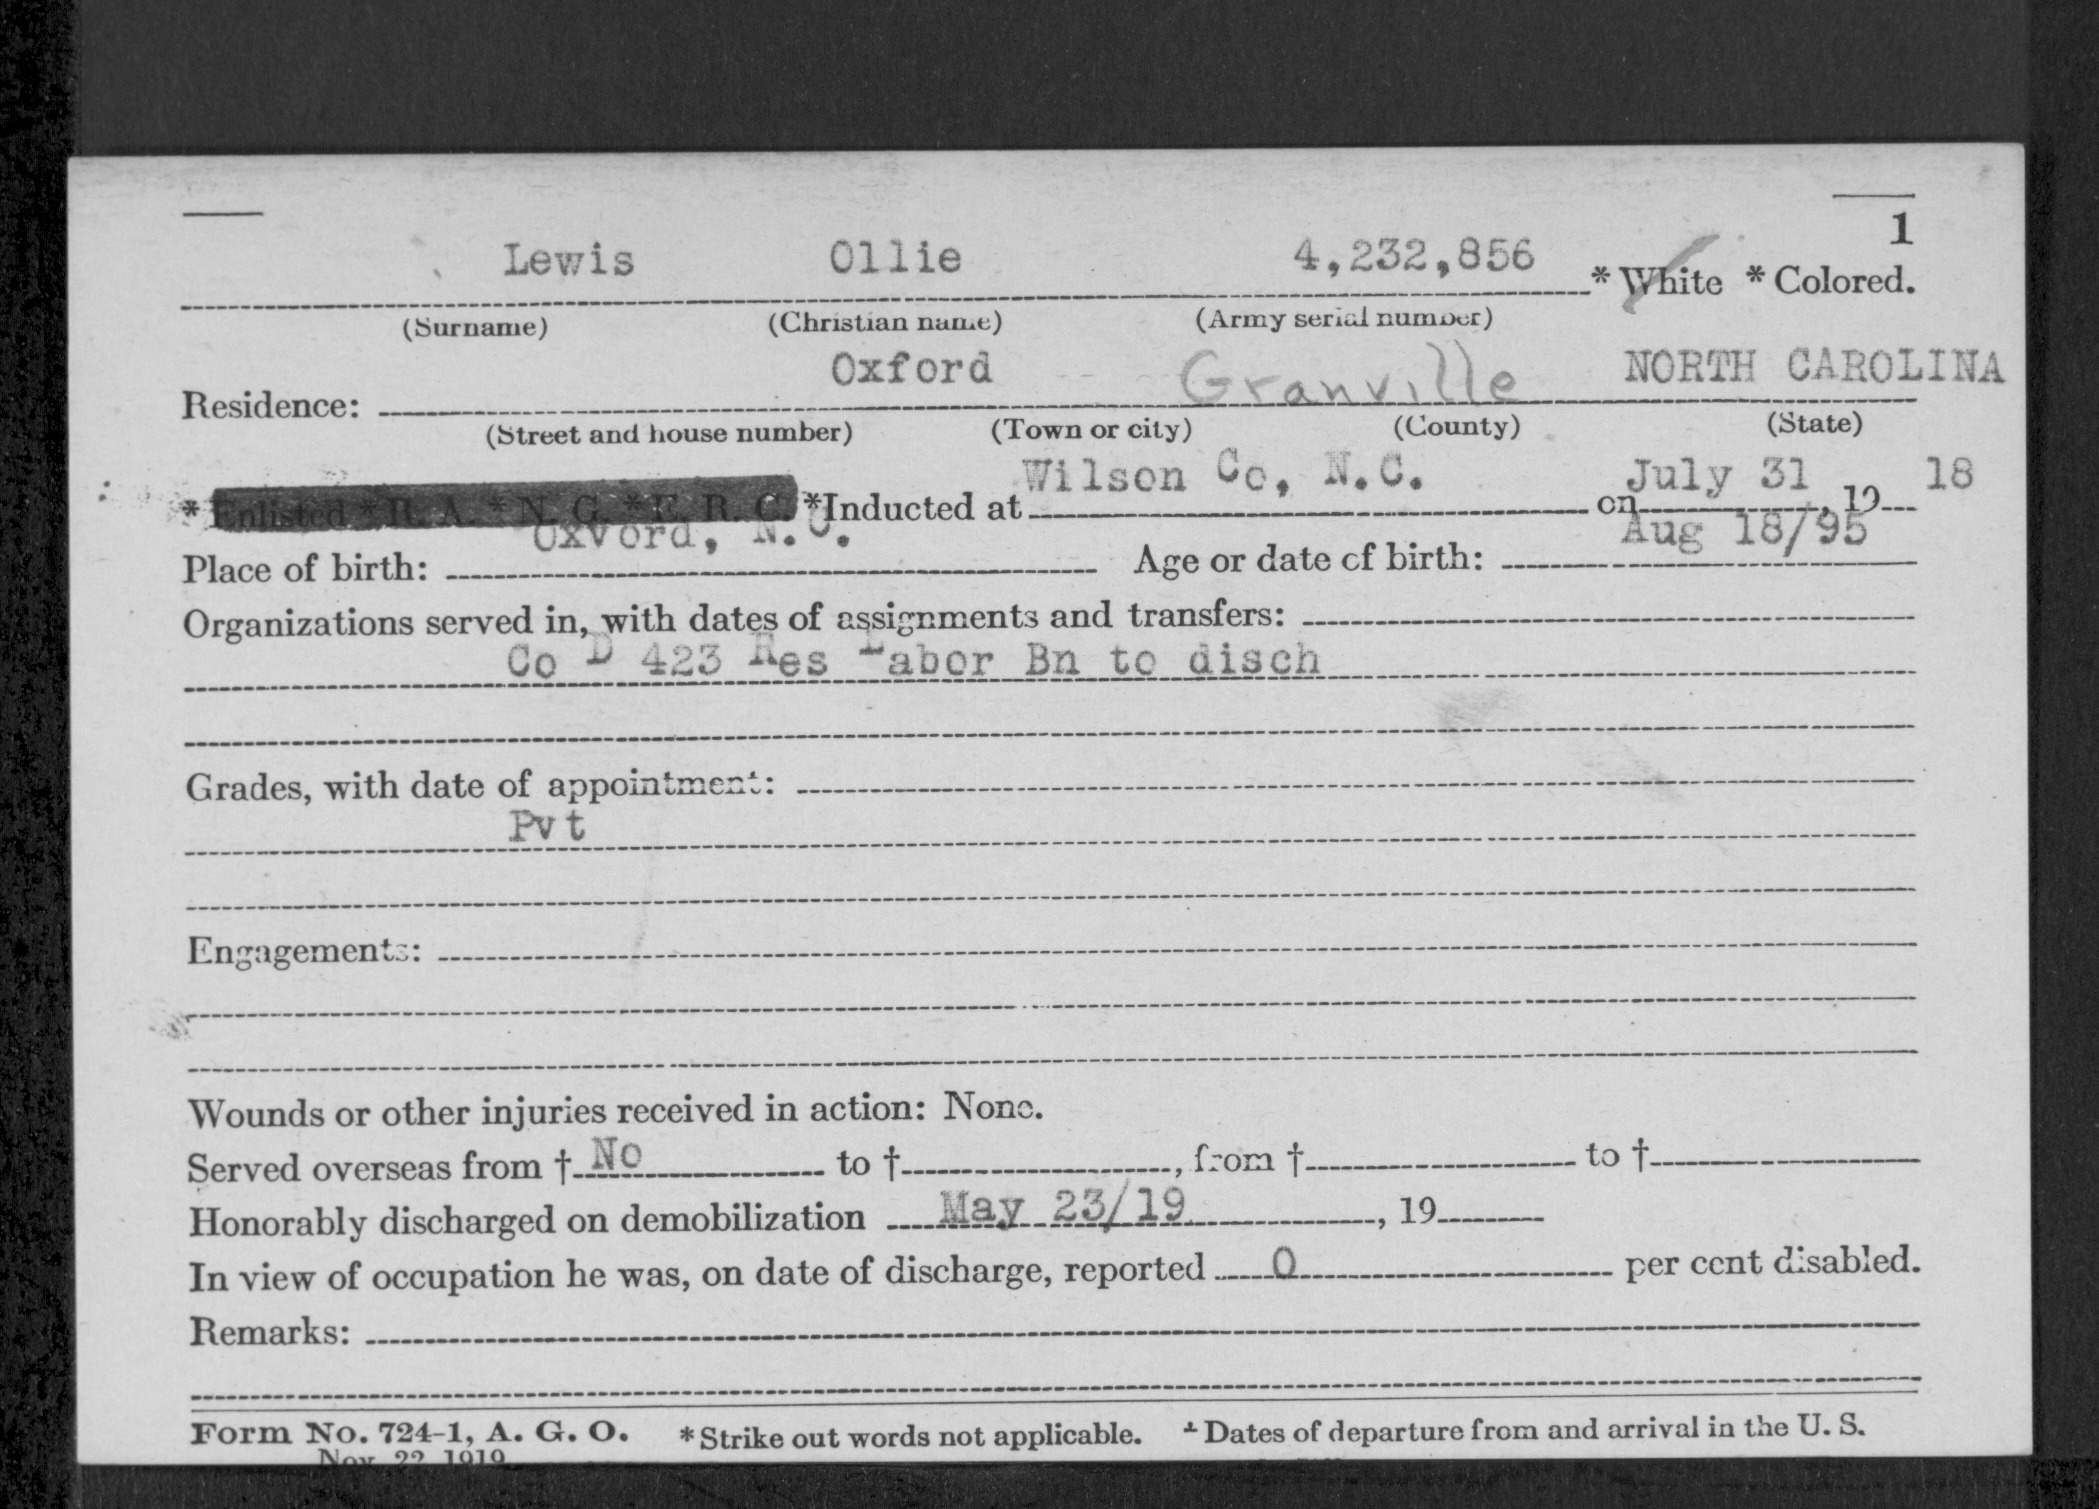 1
Lewis Ollie 4,232,856 * White * Colored.
(Surname) (Christian name) (Army serial number)
Oxford Granville NORTH CAROLINA
Residence:
(Street and house number) (Town or city) (County) (State)
Wilson Co, N.C. July 31 18
* Enlisted * R. A. * N. G. * E. R. C. *Inducted at on , 19
Oxvord, N.C. Aug 18/95
Place of birth: Age or date of birth:
Organizations served in, with dates of assignments and transfers:
Co D 423 Res Labor Bn to disch
Grades, with date of appointment:
Pvt
Engagements:
Wounds or other injuries received in action: None.
Served overseas from † No to † , from † to †
Honorably discharged on demobilization May 23/19 , 19
In view of occupation he was, on date of discharge, reported 0 per cent disabled.
Remarks:
Form No. 724-1, A. G. O. * Strike out words not applicable. † Dates of departure from and arrival in the U. S.
Nov. 22, 1919